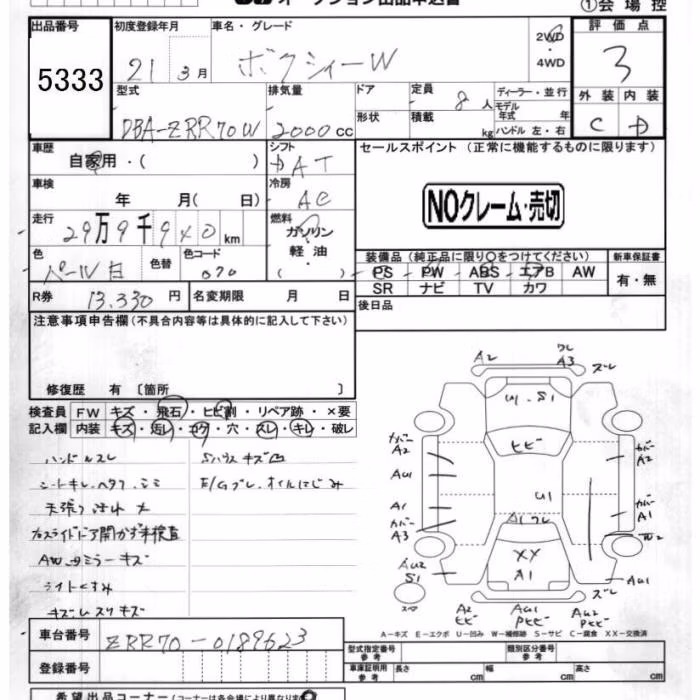 オークション出品申込書
①会場控
出品番号
5333
初度登録年月
21 3月
車名・グレード
ボクシィーW
2WD
・
4WD
評価点
3
外装 内装
C D
型式
DBA-ZRR70W
排気量
2000cc
ドア
形状
定員 8人
積載 kg
ディーラー・並行
モデル
年式 年
ハンドル 左・右
車歴
自家用・( )
シフト
AT
セールスポイント (正常に機能するものに限ります)
NOクレーム・売切
車検
年 月( 日)
冷房
AC
走行
29万9千940km
燃料
ガソリン
軽油
( )
色
パール白
色替
色コード
070
装備品 (純正品に限り○をつけてください)
PS PW ABS エアB AW
SR ナビ TV カワ
新車保証書
有・無
R券 13,330円
名変期限 月 日
後日品
注意事項申告欄 (不具合内容等は具体的に記入して下さい)
修復歴 有 〔箇所 〕
検査員
記入欄
FW キズ・飛石・ヒビ割・リペア跡・×要
内装 キズ・汚レ・コゲ・穴・スレ・キレ・破レ
ハンドルスレ
Sハウスキズ凹
シートキレ.ヘタリ.シミ
E/Gブレ.オイルにじみ
天張り汚れ大
右スライドドア開かず未検査
AW.ミラーキズ
ライトくすみ
キズ.スリキズ
A2
ワレ
A3
ズレ
U1.S1
ヒビ
カバー
A2
AU1
A1
カバー
A3
AU2
S1
U1
A1ワレ
XX
A1
カバー
A2
カバー
A1
W2
AU1
ズレ
A2
ヒビ
AU1
Pヒビ
AU2
Pヒビ
スペア
A－キズ E－エクボ U－凹み W－補修跡 S－サビ C－腐食 XX－交換済
車台番号
ZRR70-0189623
登録番号
型式指定番号
参考
類別区分番号
参考
車庫証明用
参考
長さ cm
幅 cm
高さ cm
希望出品コーナー(コーナーは各会場により異なりま